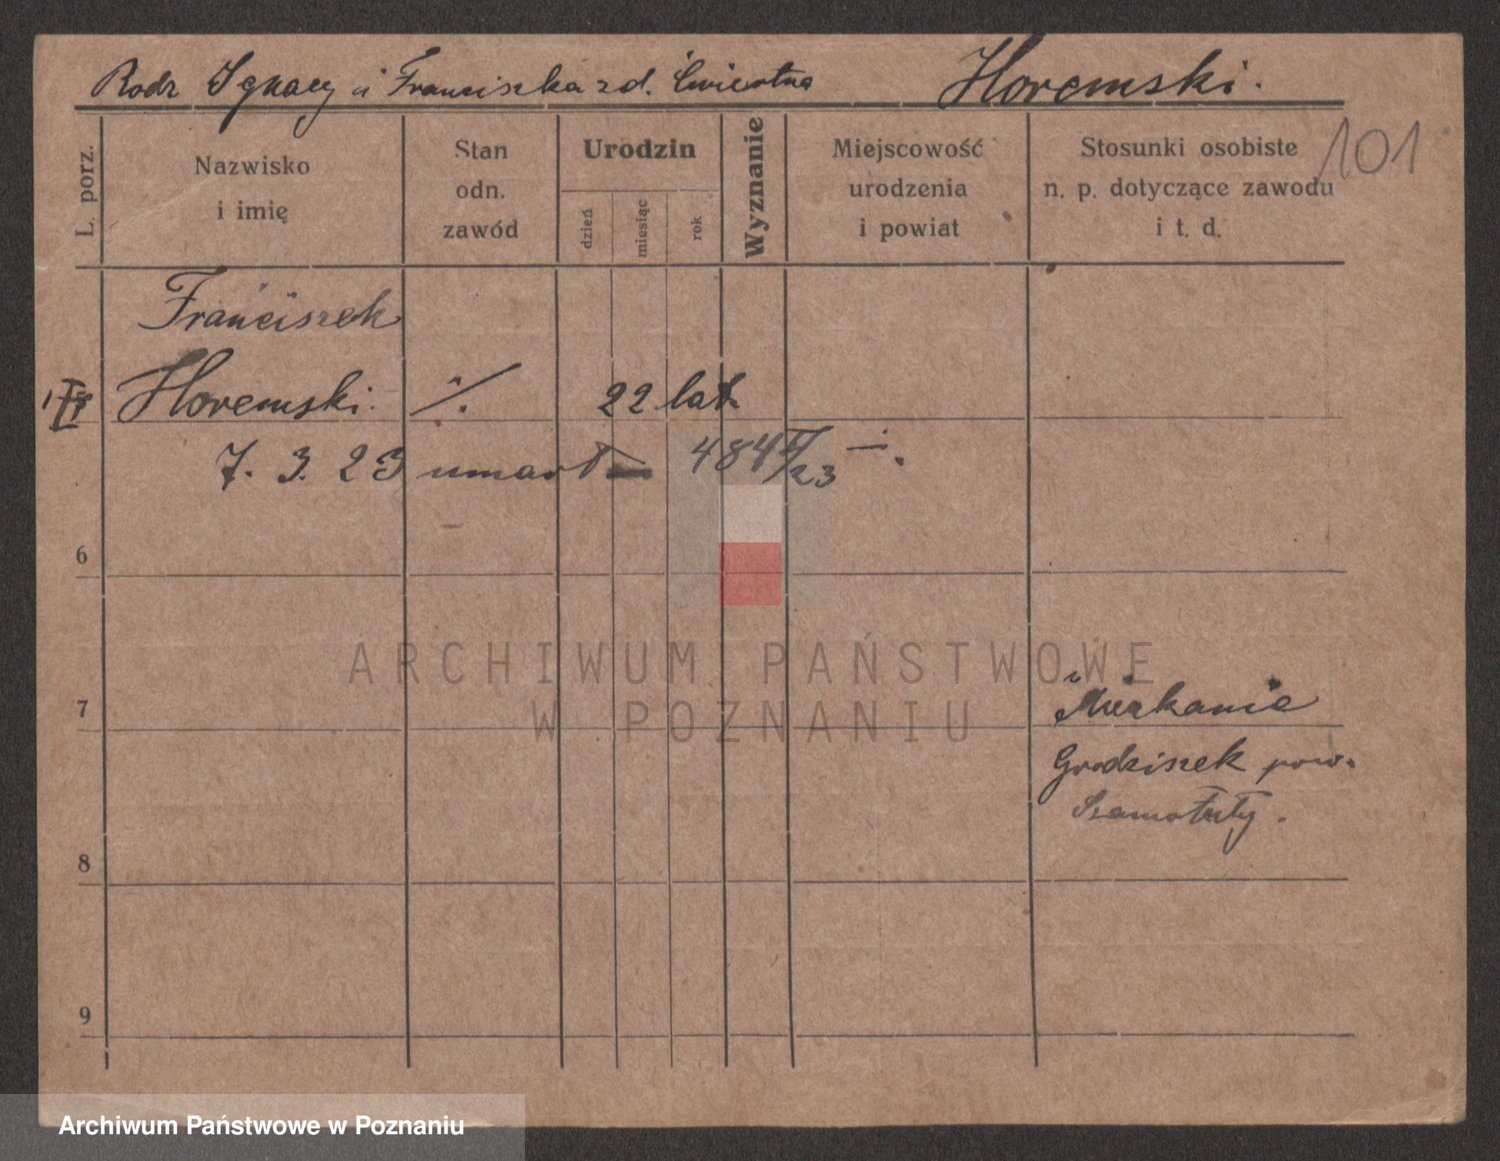 Rodz Ignacy i Franciszka z d. Ćwiertna Horemski.
101
L. porz.
Nazwisko
i imię
Stan
odn.
zawód
Urodzin
dzień
miesiąc
rok
Wyznanie
Miejscowość
urodzenia
i powiat
Stosunki osobiste
n. p. dotyczące zawodu
i t. d.
Franciszek
Horemski. ·/. 22 lat
7. 3. 23 umarł — 484 /23 — .
6
7
Mieszkanie
Grodziszek pow.
Szamotuły.
8
9
ARCHIWUM PAŃSTWOWE
W POZNANIU
Archiwum Państwowe w Poznaniu